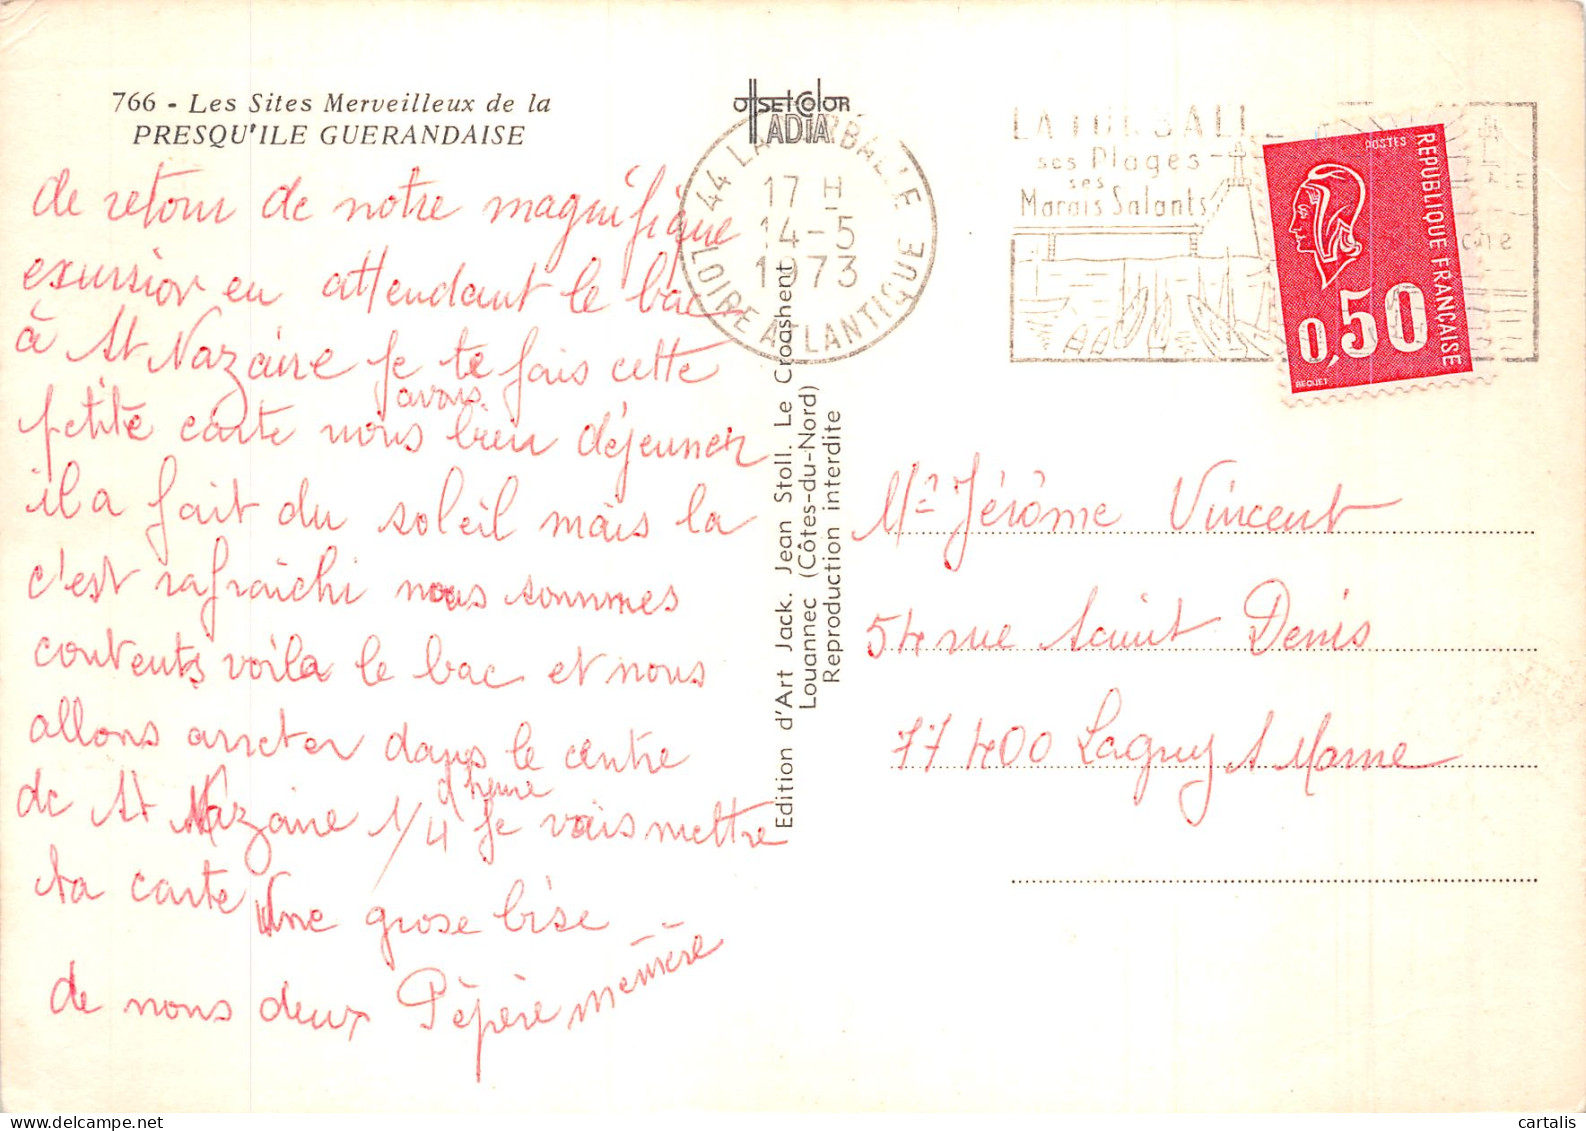 766 - Les Sites Merveilleux de la
PRESQU'ILE GUERANDAISE
de retour de notre magnifique
exursion en attendant le bac
à St Nazaire je te fais cette
petite carte nous avons bien déjeuner
il a fait du soleil mais la
c'est rafraichi nous sommes
contents voila le bac et nous
allons arreter dans le centre
de St Nazaire 1/4 d'heure je vais mettre
ta carte Une grose bise
de nous deux Pépère mémère
offset-color
IADIA
44 LA TURBALLE
17 H
14-5
1973
LOIRE ATLANTIQUE
LA TURBALLE
ses Plages
ses
Marais Salants
POSTES
REPUBLIQUE FRANÇAISE
0,50
BEQUET
Edition d'Art Jack. Jean Stoll. Le Croashent
Louannec (Côtes-du-Nord)
Reproduction interdite
Mr Jérôme Vincent
54 rue Saint Denis
77400 Lagny S Marne
cartalis